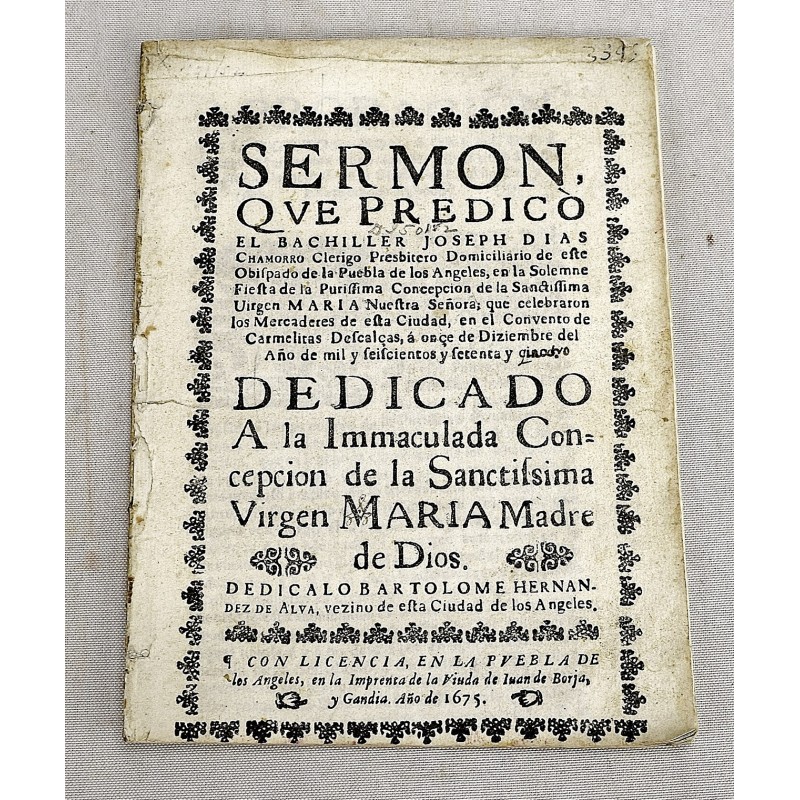 3395
SERMON,
QVE PREDICÒ
EL BACHILLER JOSEPH DIAS
CHAMORRO Clerigo Presbitero Domiciliario de este
Obiſpado de la Puebla de los Angeles, en la Solemne
Fieſta de la Puriſſima Concepcion de la Sanctiſſima
Uirgen MARIA Nueſtra Señora; que celebraron
los Mercaderes de eſta Ciudad, en el Convento de
Carmelitas Deſcalças, á onçe de Diziembre del
Año de mil y ſeiſcientos y ſetenta y
DEDICADO
A la Immaculada Con=
cepcion de la Sanctiſsima
Virgen MARIA Madre
de Dios.
DEDICALO BARTOLOME HERNAN-
DEZ DE ALVA, vezino de eſta Ciudad de los Angeles.
¶ CON LICENCIA, EN LA PVEBLA DE
los Angeles, en la Imprenta de la Viuda de Iuan de Borja,
y Gandia. Año de 1675.